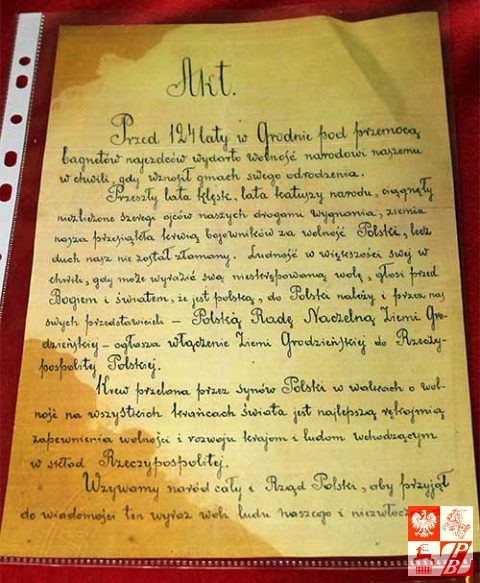 Akt.
Przed 124 laty w Grodnie pod przemocą
bagnetów najezdców wydarto wolność narodowi naszemu
w chwili, gdy wznosił gmach swego odrodzenia.
Przeszły lata klęsk, lata katuszy narodu, ciągnęły
niezliczone szeregi ojców naszych drogami wygnania, ziemia
nasza przesiąkła krwią bojowników za wolność Polski, lecz
duch nasz nie został złamany. Ludność w większości swej w
chwili, gdy może wyrazić swą nieskrępowaną wolę, głosi przed
Bogiem i światem, że jest polską, do Polski należy i przez nas
swych przedstawicieli – Polską Radę Naczelną Ziemi Gro-
dzieńskiej – ogłasza włączenie Ziemi Grodzieńskiej do Rzeczy-
pospolitej Polskiej.
Krew przelana przez synów Polski w walkach o wol-
ność na wszystkich krańcach świata jest najlepszą rękojmią
zapewnienia wolności i rozwoju krajom i ludom wchodzącym
w skład Rzeczypospolitej.
Wzywamy naród cały i Rząd Polski, aby przyjął
do wiadomości ten wyraz woli ludu naszego i niezwłocz